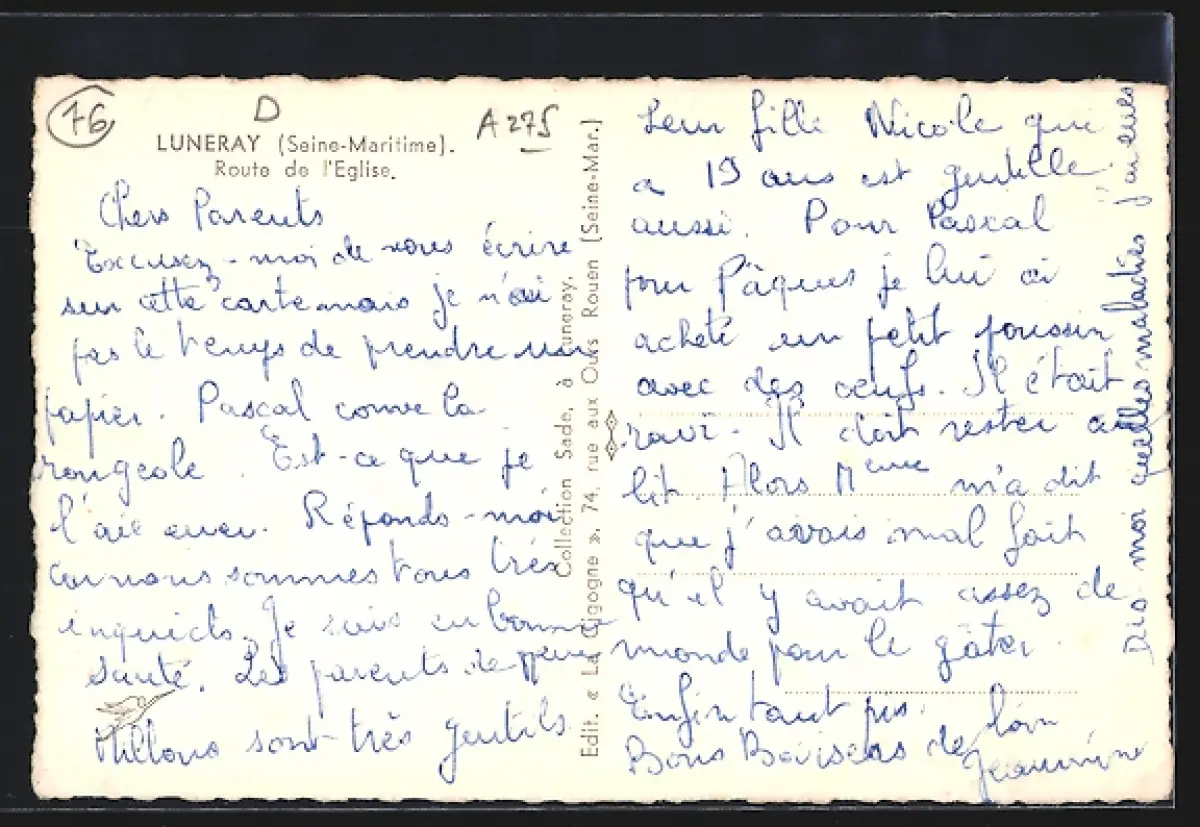 76
D
A275
LUNERAY (Seine-Maritime).
Route de l'Eglise.
Chers Parents
Excusez-moi de vous écrire
sur cette carte mais je n'ai
pas le temps de prendre un
papier. Pascal couve la
rougeole. Est-ce que je
l'ai eue. Réponds-moi
car nous sommes tous très
inquiets. Je suis en bonne
santé. Les parents de Mme
Millons sont très gentils.
Edit. « La Cigogne », 74, rue aux Ours Rouen (Seine-Mar.)
Collection Sade, à Luneray.
Leur fille Nicole qui
a 19 ans est gentille
aussi. Pour Pascal
pour Pâques je lui ai
acheté un petit poussin
avec des oeufs. Il était
ravi. Il doit rester au
lit. Alors Meme m'a dit
que j'avais mal fait
qu'il y avait assez de
monde pour le gâter.
Enfin tant pis.
Bons Baisers de loin
Jeannine
Dis moi quelles maladies j'ai eues